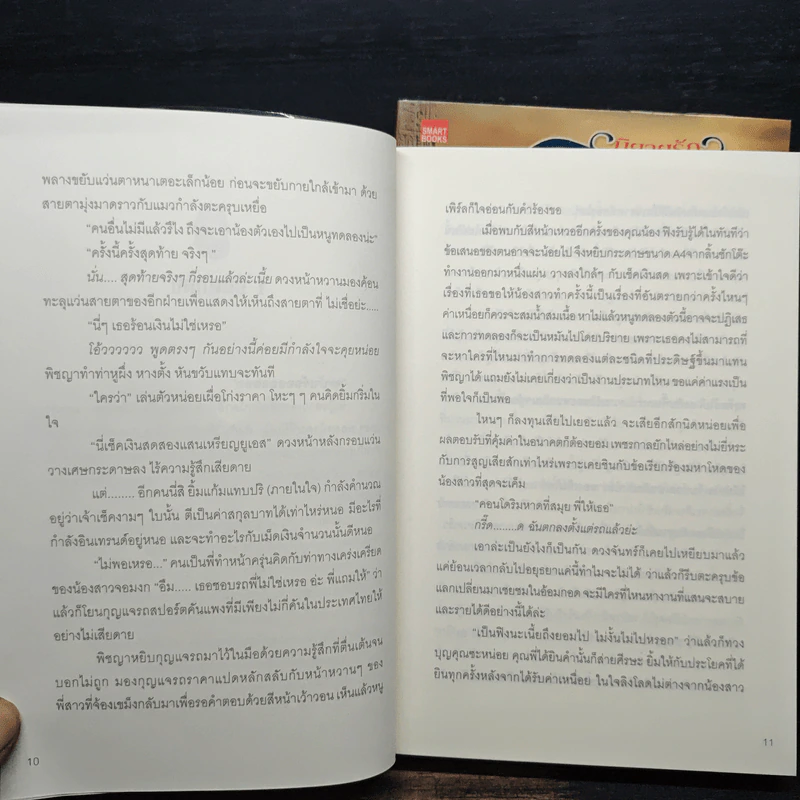 SMART
BOOKS
นิยายรัก
พลางขยับแว่นตาหนาเตอะเล็กน้อย ก่อนจะขยับกายใกล้เข้ามา ด้วย
สายตามุ่งมาดราวกับแมวกำลังตะครุบเหยื่อ
“คนอื่นไม่มีแล้วรึไง ถึงจะเอาน้องตัวเองไปเป็นหนูทดลองน่ะ”
“ครั้งนี้ครั้งสุดท้าย จริงๆ ”
นั่น.... สุดท้ายจริงๆ กี่รอบแล้วล่ะเนี่ย ดวงหน้าหวานมองค้อน
ทะลุแว่นสายตาของอีกฝ่ายเพื่อแสดงให้เห็นถึงสายตาที่ ไม่เชื่อย่ะ.....
“นี่ๆ เธอร้อนเงินไม่ใช่เหรอ”
โอ้วววววว พูดตรงๆ กันอย่างนี้ค่อยมีกำลังใจจะคุยหน่อย
พิชญาทำท่าหูผึ่ง หางตั้ง หันขวับแทบจะทันที
“ใครว่า” เล่นตัวหน่อยเผื่อโก่งราคา โหะๆ ๆ คนคิดยิ้มกริ่มใน
ใจ
“นี่เช็คเงินสดสองแสนเหรียญยูเอส” ดวงหน้าหลังกรอบแว่น
วางเศษกระดาษลง ไร้ความรู้สึกเสียดาย
แต่........ อีกคนนี่สิ ยิ้มแก้มแทบปริ (ภายในใจ) กำลังคำนวณ
อยู่ว่าเจ้าเช็คงามๆ ใบนั้น ตีเป็นค่าสกุลบาทได้เท่าไหร่หนอ มีอะไรที่
กำลังอินเทรนด์อยู่หนอ และจะทำอะไรกับเม็ดเงินจำนวนนั้นดีหนอ
“ไม่พอเหรอ...” คนเป็นพี่ทำหน้าครุ่นคิดกับท่าทางเคร่งเครียด
ของน้องสาวจอมงก “อืม..... เธอชอบรถพี่ไม่ใช่เหรอ อ่ะ พี่แถมให้” ว่า
แล้วก็โยนกุญแจรถสปอร์ตคันแพงที่มีเพียงไม่กี่คันในประเทศไทยให้
อย่างไม่เสียดาย
พิชญาหยิบกุญแจรถมาไว้ในมือด้วยความรู้สึกที่ตื่นเต้นจน
บอกไม่ถูก มองกุญแจรถราคาแปดหลักสลับกับหน้าหวานๆ ของ
พี่สาวที่จ้องเขม็งกลับมาเพื่อรอคำตอบด้วยสีหน้าเว้าวอน เห็นแล้วหนู
10
เพิร์ลก็ใจอ่อนกับคำร้องขอ
เมื่อพบกับสีหน้าเหวออีกครั้งของคุณน้อง ฟิงรับรู้ได้ในทันทีว่า
ข้อเสนอของตนอาจจะน้อยไป จึงหยิบกระดาษขนาด A4จากลิ้นชักโต๊ะ
ทำงานออกมาหนึ่งแผ่น วางลงใกล้ๆ กับเช็คเงินสด เพราะเข้าใจดีว่า
เรื่องที่เธอขอให้น้องสาวทำครั้งนี้เป็นเรื่องที่อันตรายกว่าครั้งไหนๆ
ค่าเหนื่อยก็ควรจะสมน้ำสมเนื้อ หาไม่แล้วหนูทดลองตัวนี้อาจจะปฏิเสธ
และการทดลองก็จะเป็นหมันไปโดยปริยาย เพราะเธอคงไม่สามารถที่
จะหาใครที่ไหนมาทำการทดลองแต่ละชนิดที่ประดิษฐ์ขึ้นมาแทน
พิชญาได้ แถมยังไม่เคยเกี่ยงว่าเป็นงานประเภทไหน ขอแค่ค่าแรงเป็น
ที่พอใจก็เป็นพอ
ไหนๆ ก็ลงทุนเสียไปเยอะแล้ว จะเสียอีกสักนิดหน่อยเพื่อ
ผลตอบรับที่คุ้มค่าในอนาคตก็ต้องยอม เพชรกาลยักไหล่อย่างไม่ยี่หระ
กับการสูญเสียสักเท่าไหร่เพราะเคยชินกับข้อเรียกร้องมหาโหดของ
น้องสาวที่สุดจะเค็ม
“คอนโดริมหาดที่สมุย พี่ให้เธอ”
กรี๊ด........ด ฉันตกลงตั้งแต่รถแล้วย่ะ
เอาล่ะเป็นยังไงก็เป็นกัน ดวงจันทร์ก็เคยไปเหยียบมาแล้ว
แค่ย้อนเวลากลับไปอยุธยาแค่นี้ทำไมจะไม่ได้ ว่าแล้วก็รีบตะครุบข้อ
แลกเปลี่ยนมาเชยชมในอ้อมกอด จะมีใครที่ไหนหางานที่แสนจะสบาย
และรายได้ดีอย่างนี้ได้ล่ะ
“เป็นฟิงนะเนี้ยถึงยอมไป ไม่งั้นไม่ไปหรอก” ว่าแล้วก็ทวง
บุญคุณซะหน่อย คุณพี่ได้ยินคำนั้นก็ส่ายศีรษะ ยิ้มให้กับประโยคที่ได้
ยินทุกครั้งหลังจากได้รับค่าเหนื่อย ในใจลิงโลดไม่ต่างจากน้องสาว
11